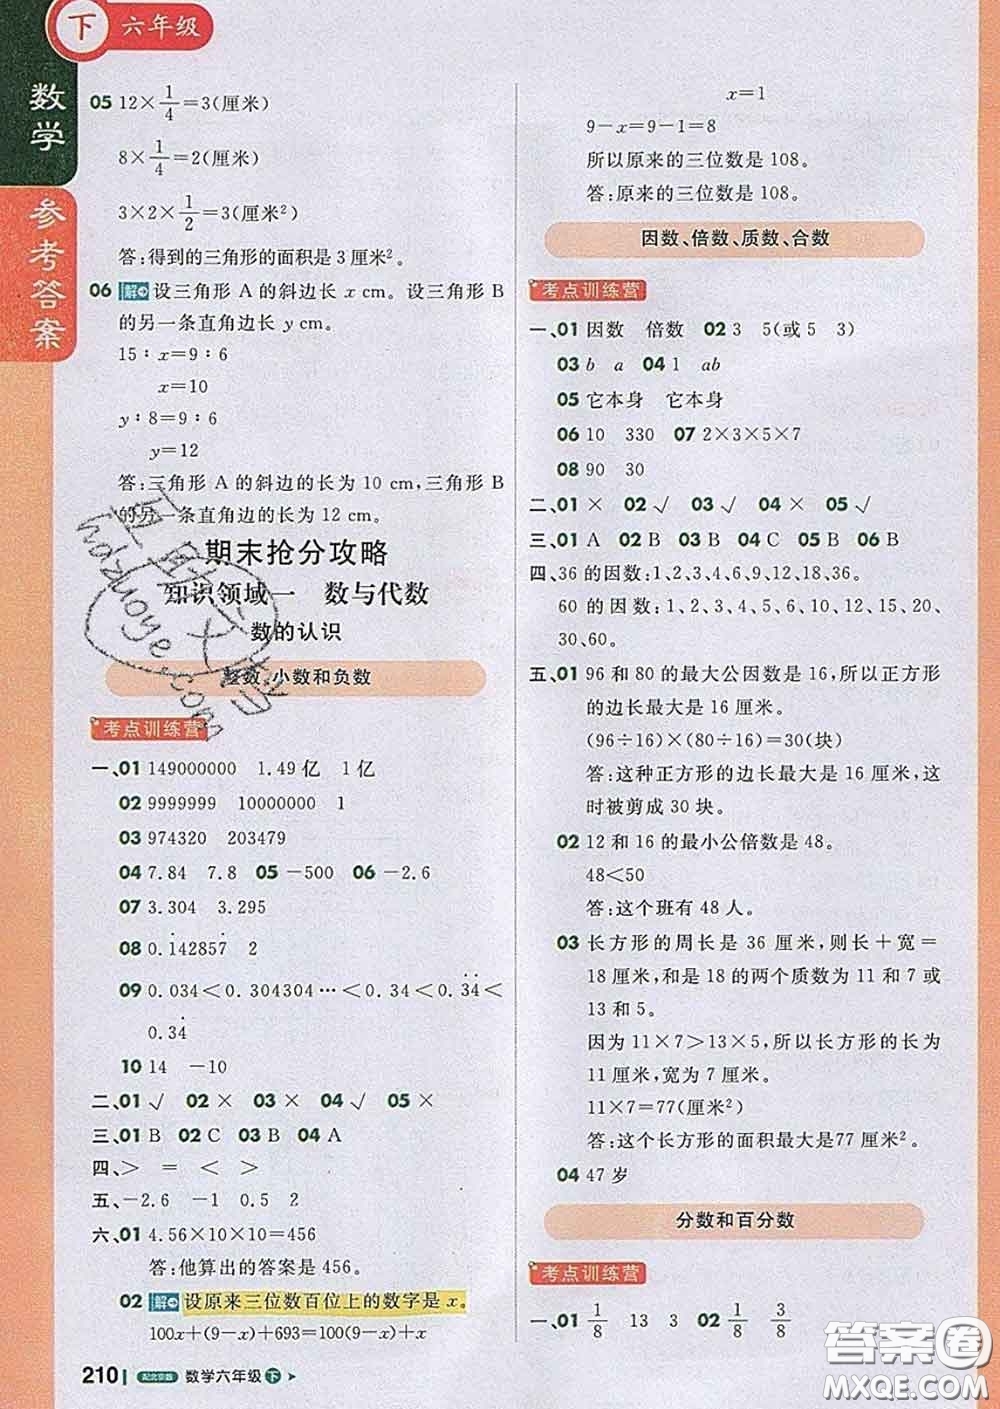 下 六年级
数学
参考答案
05 12×1/4=3(厘米)
8×1/4=2(厘米)
3×2×1/2=3(厘米²)
答:得到的三角形的面积是3厘米²。
06 解 设三角形 A 的斜边长 x cm。设三角形 B
的另一条直角边长 y cm。
15∶x=9∶6
x=10
y∶8=9∶6
y=12
答:三角形 A 的斜边的长为 10 cm,三角形 B
的另一条直角边的长为 12 cm。
期末抢分攻略
知识领域一 数与代数
数的认识
整数、小数和负数
考点训练营
一、01 149000000 1.49亿 1亿
02 9999999 10000000 1
03 974320 203479
04 7.84 7.8 05 -500 06 -2.6
07 3.304 3.295
08 0.1̇42857̇ 2
09 0.034<0.304304…<0.34<0.3̇4̇<
0.34̇
10 14 -10
二、01 √ 02 × 03 × 04 √ 05 ×
三、01 B 02 C 03 B 04 A
四、> = < >
五、-2.6 -1 0.5 2
六、01 4.56×10×10=456
答:他算出的答案是456。
02 解 设原来三位数百位上的数字是 x。
100x+(9-x)+693=100(9-x)+x
210 配北京版 数学六年级 下
x=1
9-x=9-1=8
所以原来的三位数是 108。
答:原来的三位数是 108。
因数、倍数、质数、合数
考点训练营
一、01 因数 倍数 02 3 5(或 5 3)
03 b a 04 1 ab
05 它本身 它本身
06 10 330 07 2×3×5×7
08 90 30
二、01 × 02 √ 03 √ 04 × 05 √
三、01 A 02 B 03 B 04 C 05 B 06 B
四、36 的因数:1、2、3、4、6、9、12、18、36。
60 的因数:1、2、3、4、5、6、10、12、15、20、
30、60。
五、01 96 和 80 的最大公因数是 16,所以正方形
的边长最大是 16 厘米。
(96÷16)×(80÷16)=30(块)
答:这种正方形的边长最大是 16 厘米,这
时被剪成 30 块。
02 12 和 16 的最小公倍数是 48。
48<50
答:这个班有 48 人。
03 长方形的周长是 36 厘米,则长+宽=
18 厘米,和是 18 的两个质数为 11 和 7 或
13 和 5。
因为 11×7>13×5,所以长方形的长为
11 厘米,宽为 7 厘米。
11×7=77(厘米²)
答:这个长方形的面积最大是77 厘米²。
04 47 岁
分数和百分数
考点训练营
一、01 1/8 13 3 02 1/8 3/8
答案圈
MXQE.COM